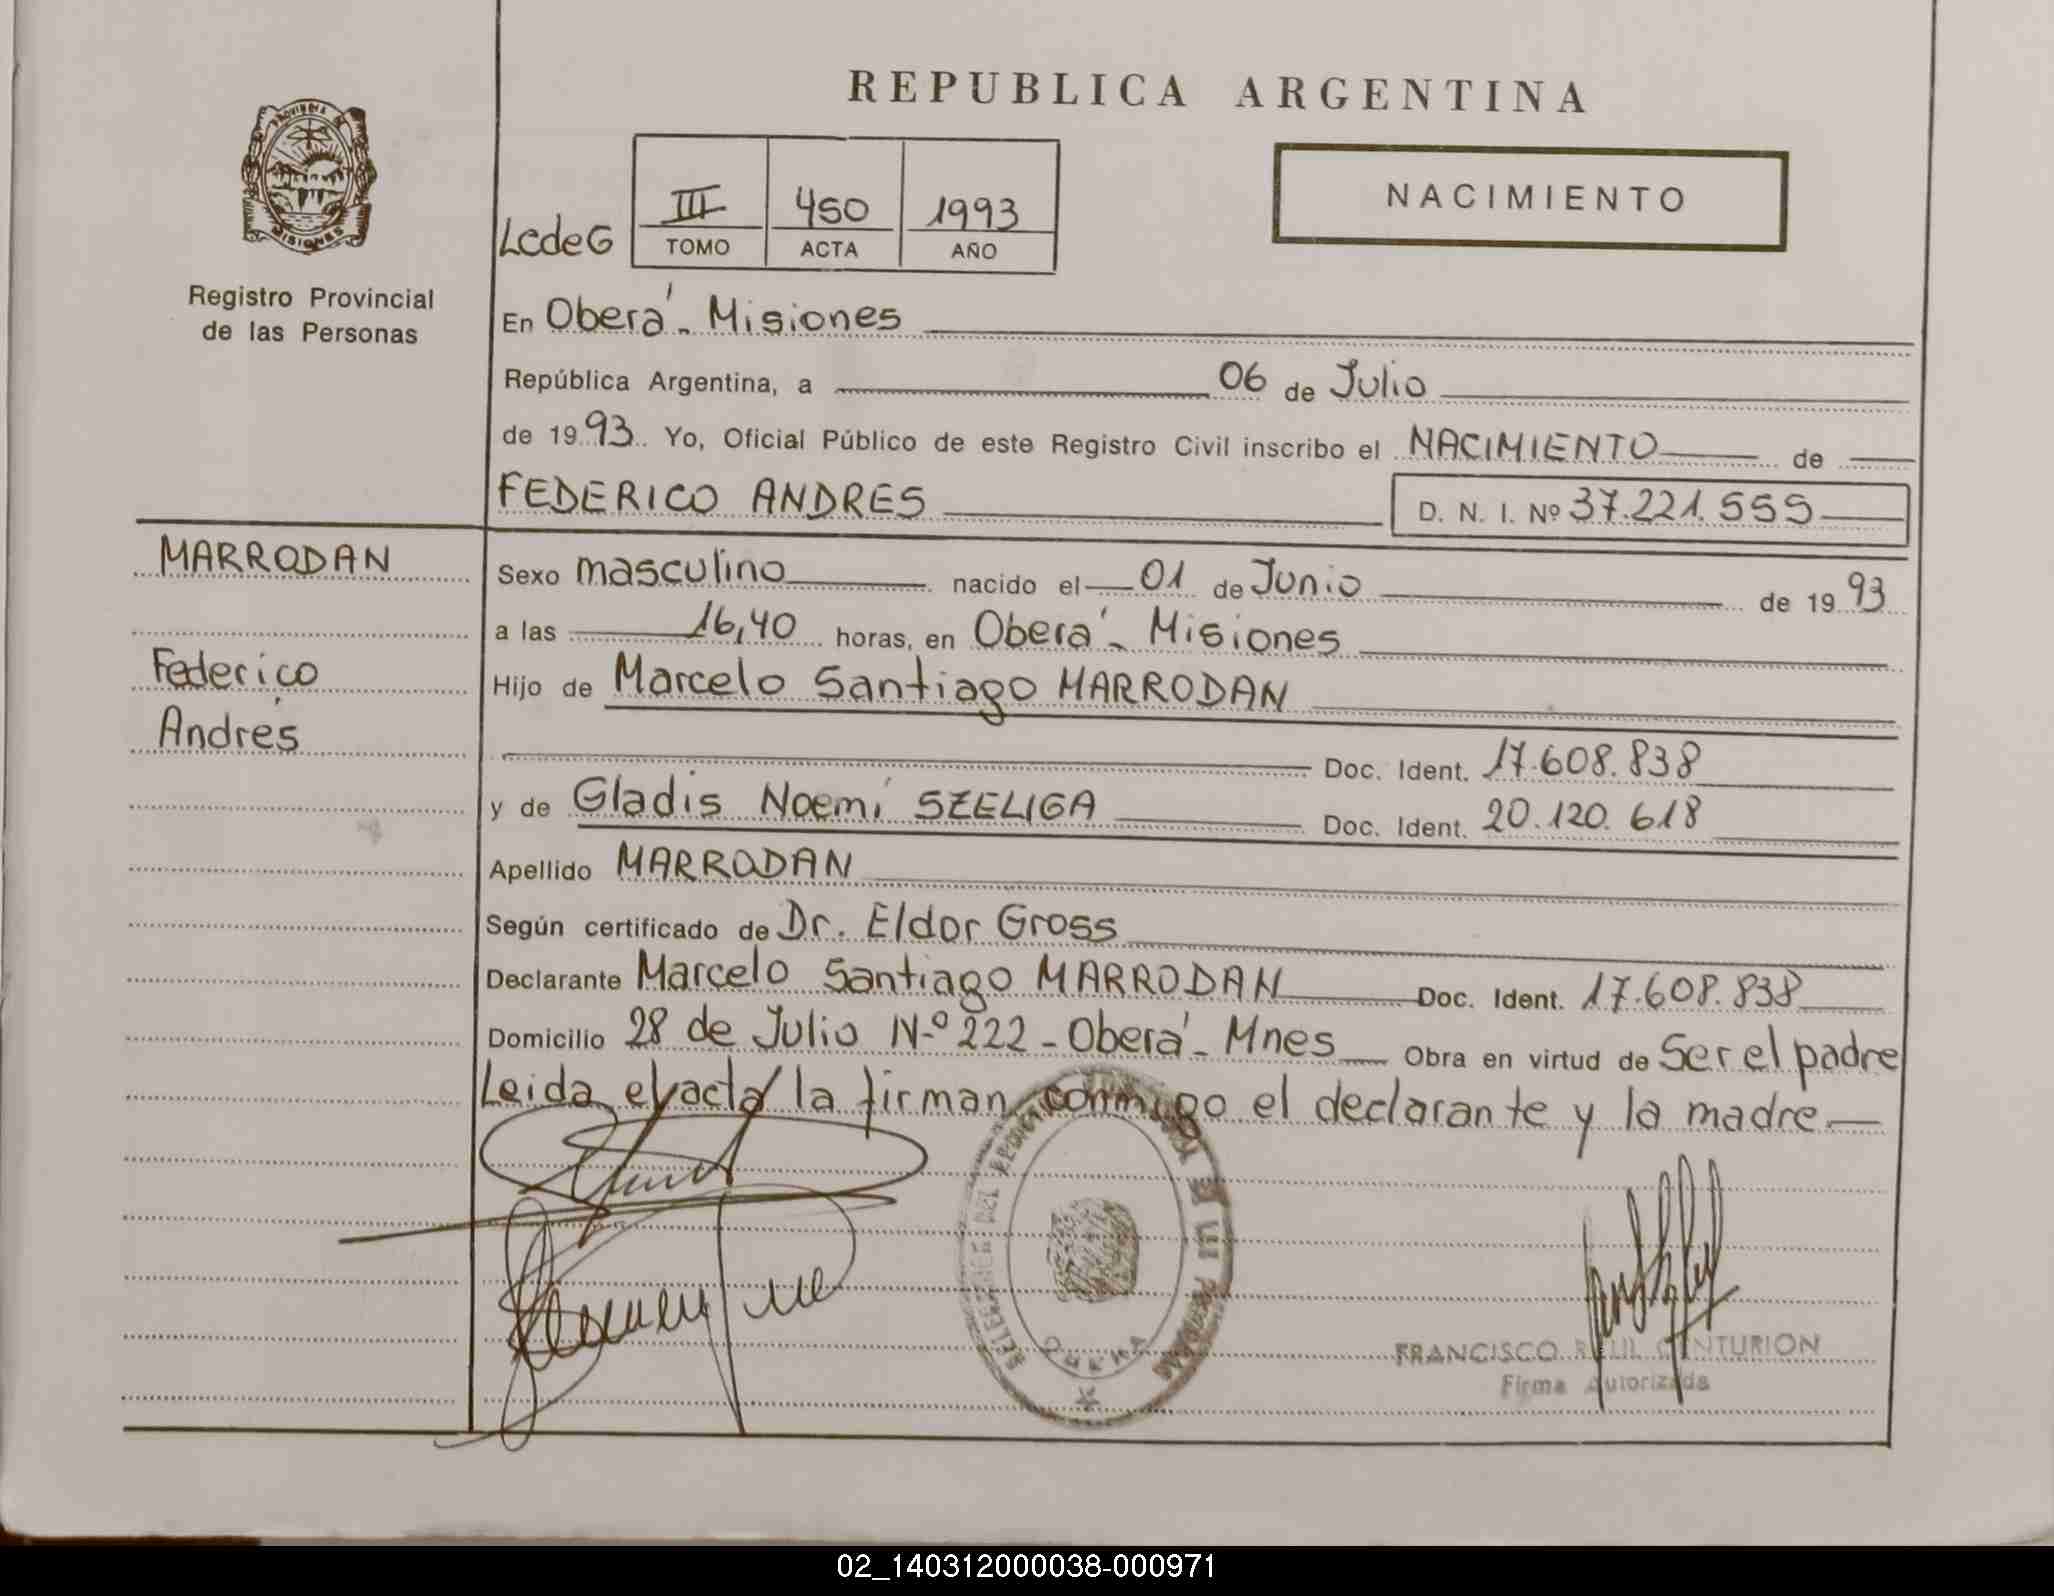 REPUBLICA ARGENTINA
PROVINCIA DE
MISIONES
Registro Provincial
de las Personas
LcdeG
III 450 1993
TOMO ACTA AÑO
NACIMIENTO
En Oberá - Misiones
República Argentina, a 06 de Julio
de 1993. Yo, Oficial Público de este Registro Civil inscribo el NACIMIENTO de
FEDERICO ANDRES D. N. I. Nº 37.221.555
MARRODAN
Federico
Andrés
Sexo masculino nacido el 01 de Junio de 1993
a las 16,40 horas, en Oberá - Misiones
Hijo de Marcelo Santiago MARRODAN
Doc. Ident. 17.608.838
y de Gladis Noemí SZELIGA Doc. Ident. 20.120.618
Apellido MARRODAN
Según certificado de Dr. Eldor Gross
Declarante Marcelo Santiago MARRODAN Doc. Ident. 17.608.838
Domicilio 28 de Julio N-º 222 - Oberá - Mnes Obra en virtud de Ser el padre
Leida el acta la firman conmigo el declarante y la madre
FRANCISCO CENTURION
Firma Autorizada
02_140312000038-000971